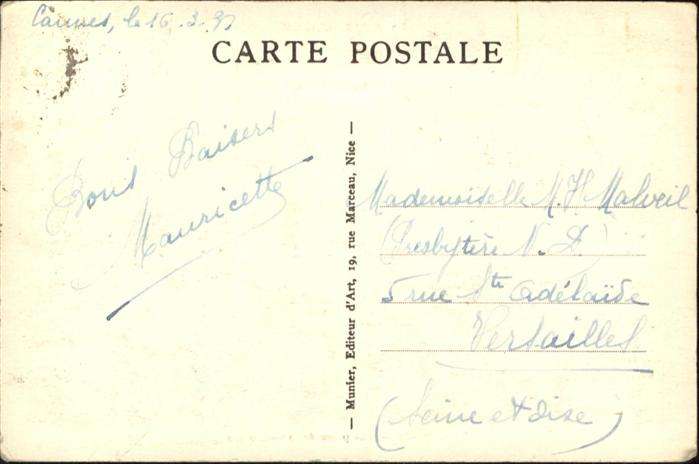 Cannes, le 16.3.37
CARTE POSTALE
Bons Baisers
Mauricette
— Munier, Editeur d'Art, 19, rue Marceau, Nice —
Mademoiselle M. H Malveil
(Presbytère N. D.)
5 rue Ste Adélaïde
Versailles
(Seine et Oise)